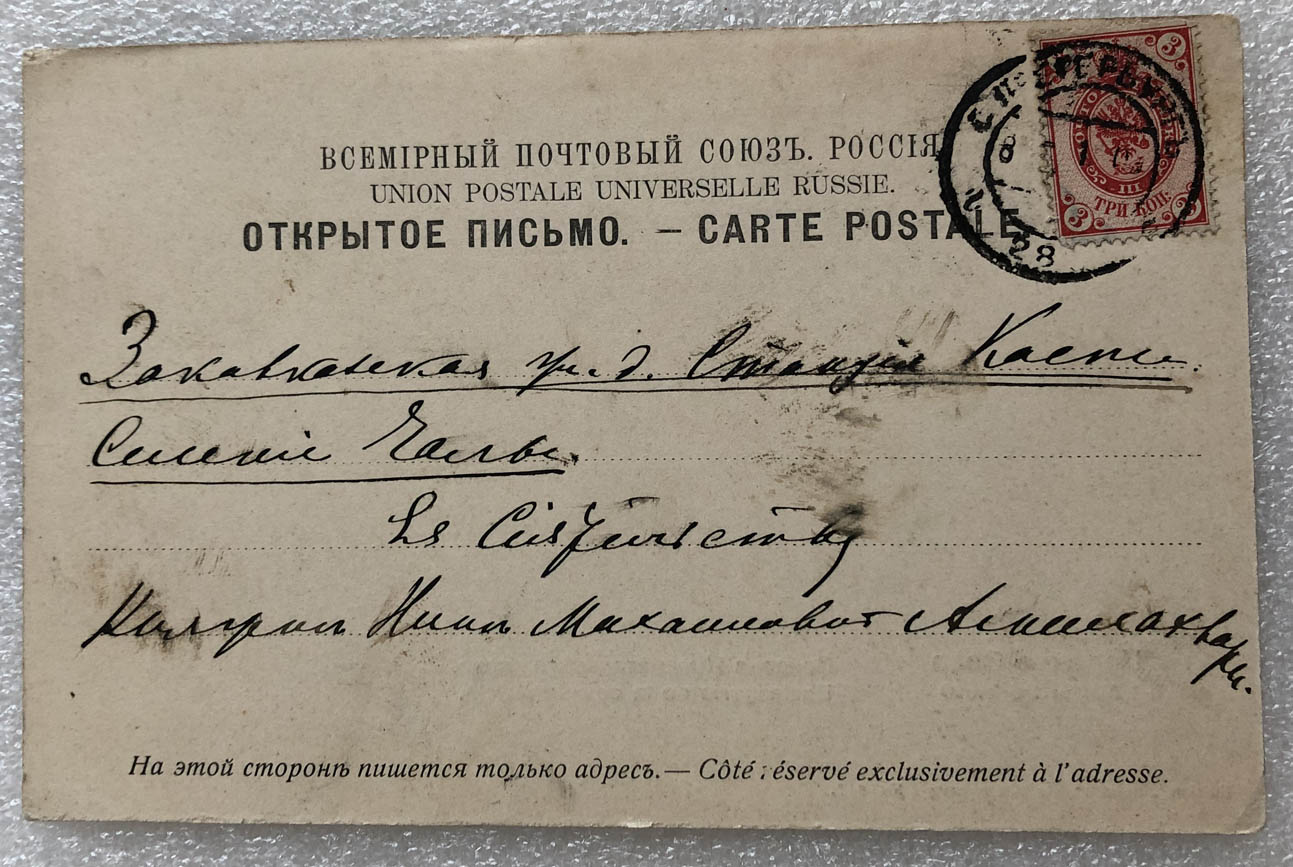 ВСЕМІРНЫЙ ПОЧТОВЫЙ СОЮЗЪ. РОССІЯ
UNION POSTALE UNIVERSELLE RUSSIE.
ОТКРЫТОЕ ПИСЬМО. — CARTE POSTALE
С.ПЕТЕРБУРГЪ
8
28
3
3
3
III
ТРИ КОП.
Закавказская ж. д. Станція Каспи.
Селеніе Чалы.
Ея Сіятельству
Княжнѣ Нинѣ Михайловнѣ Амилахвари.
На этой сторонѣ пишется только адресъ.— Côté réservé exclusivement à l'adresse.